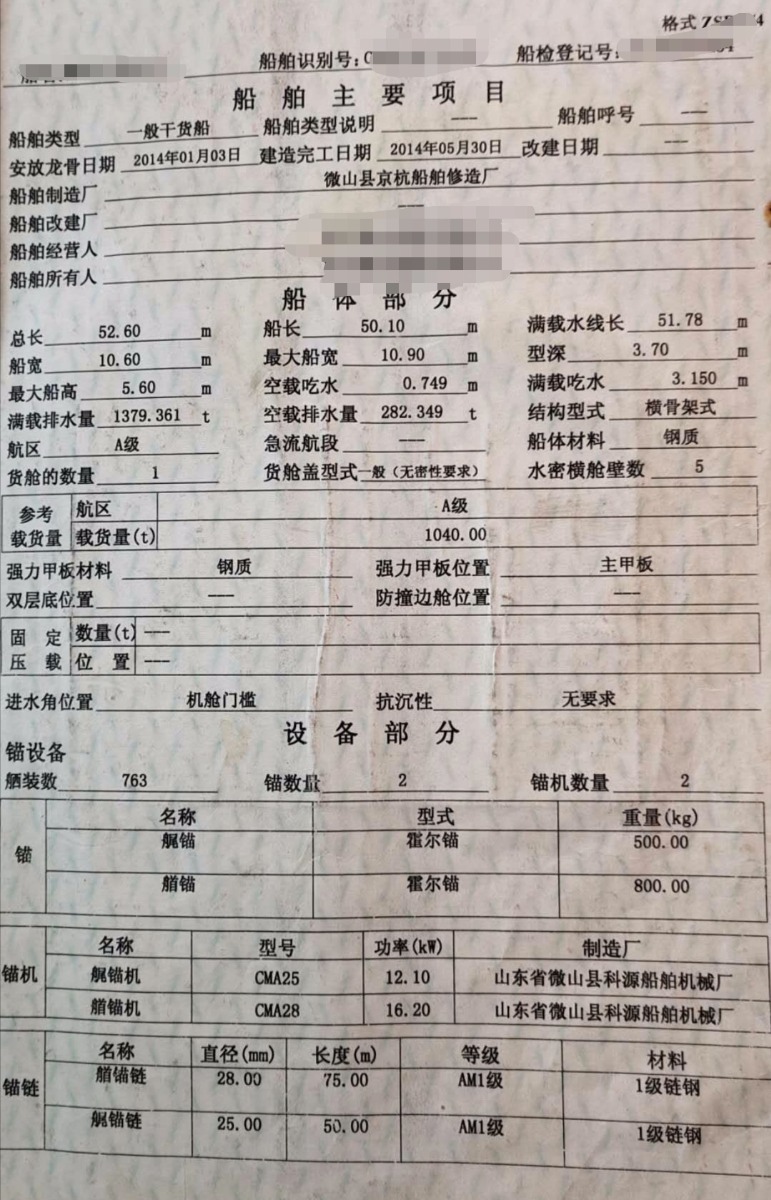 格式 ZS
船舶识别号: 船检登记号:
船舶主要项目
船舶类型 一般干货船 船舶类型说明 --- 船舶呼号 ---
安放龙骨日期 2014年01月03日 建造完工日期 2014年05月30日 改建日期 ---
船舶制造厂 微山县京杭船舶修造厂
船舶改建厂 ---
船舶经营人
船舶所有人
船体部分
总长 52.60 m 船长 50.10 m 满载水线长 51.78 m
船宽 10.60 m 最大船宽 10.90 m 型深 3.70 m
最大船高 5.60 m 空载吃水 0.749 m 满载吃水 3.150 m
满载排水量 1379.361 t 空载排水量 282.349 t 结构型式 横骨架式
航区 A级 急流航段 --- 船体材料 钢质
货舱的数量 1 货舱盖型式 一般(无密性要求) 水密横舱壁数 5
参考载货量 航区 A级
载货量(t) 1040.00
强力甲板材料 钢质 强力甲板位置 主甲板
双层底位置 --- 防撞边舱位置 ---
固定压载 数量(t) ---
位置 ---
进水角位置 机舱门槛 抗沉性 无要求
设备部分
锚设备
舾装数 763 锚数量 2 锚机数量 2
锚 名称 型式 重量(kg)
艉锚 霍尔锚 500.00
艏锚 霍尔锚 800.00
锚机 名称 型号 功率(kW) 制造厂
艉锚机 CMA25 12.10 山东省微山县科源船舶机械厂
艏锚机 CMA28 16.20 山东省微山县科源船舶机械厂
锚链 名称 直径(mm) 长度(m) 等级 材料
艏锚链 28.00 75.00 AM1级 1级链钢
艉锚链 25.00 50.00 AM1级 1级链钢